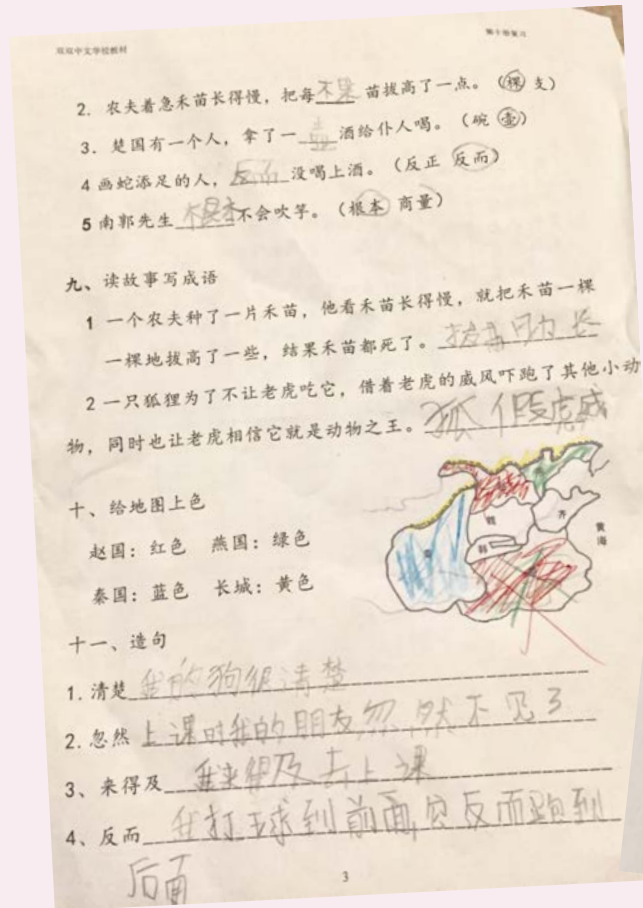 双双中文学校教材
第十册复习
2. 农夫着急禾苗长得慢，把每棵苗拔高了一点。（棵 支）
3. 楚国有一个人，拿了一壶酒给仆人喝。（碗 壶）
4 画蛇添足的人，反而没喝上酒。（反正 反而）
5 南郭先生根本不会吹竽。（根本 商量）
九、读故事写成语
1 一个农夫种了一片禾苗，他看禾苗长得慢，就把禾苗一棵
一棵地拔高了一些，结果禾苗都死了。拔苗助长
2 一只狐狸为了不让老虎吃它，借着老虎的威风吓跑了其他小动
物，同时也让老虎相信它就是动物之王。狐假虎威
十、给地图上色
赵国：红色 燕国：绿色
秦国：蓝色 长城：黄色
魏
齐
韩
黄海
十一、造句
1. 清楚 我的狗很清楚
2. 忽然 上课时我的朋友忽然不见了
3、来得及 我来得及去上课
4、反而 我打球到前面，它反而跑到
后面
3